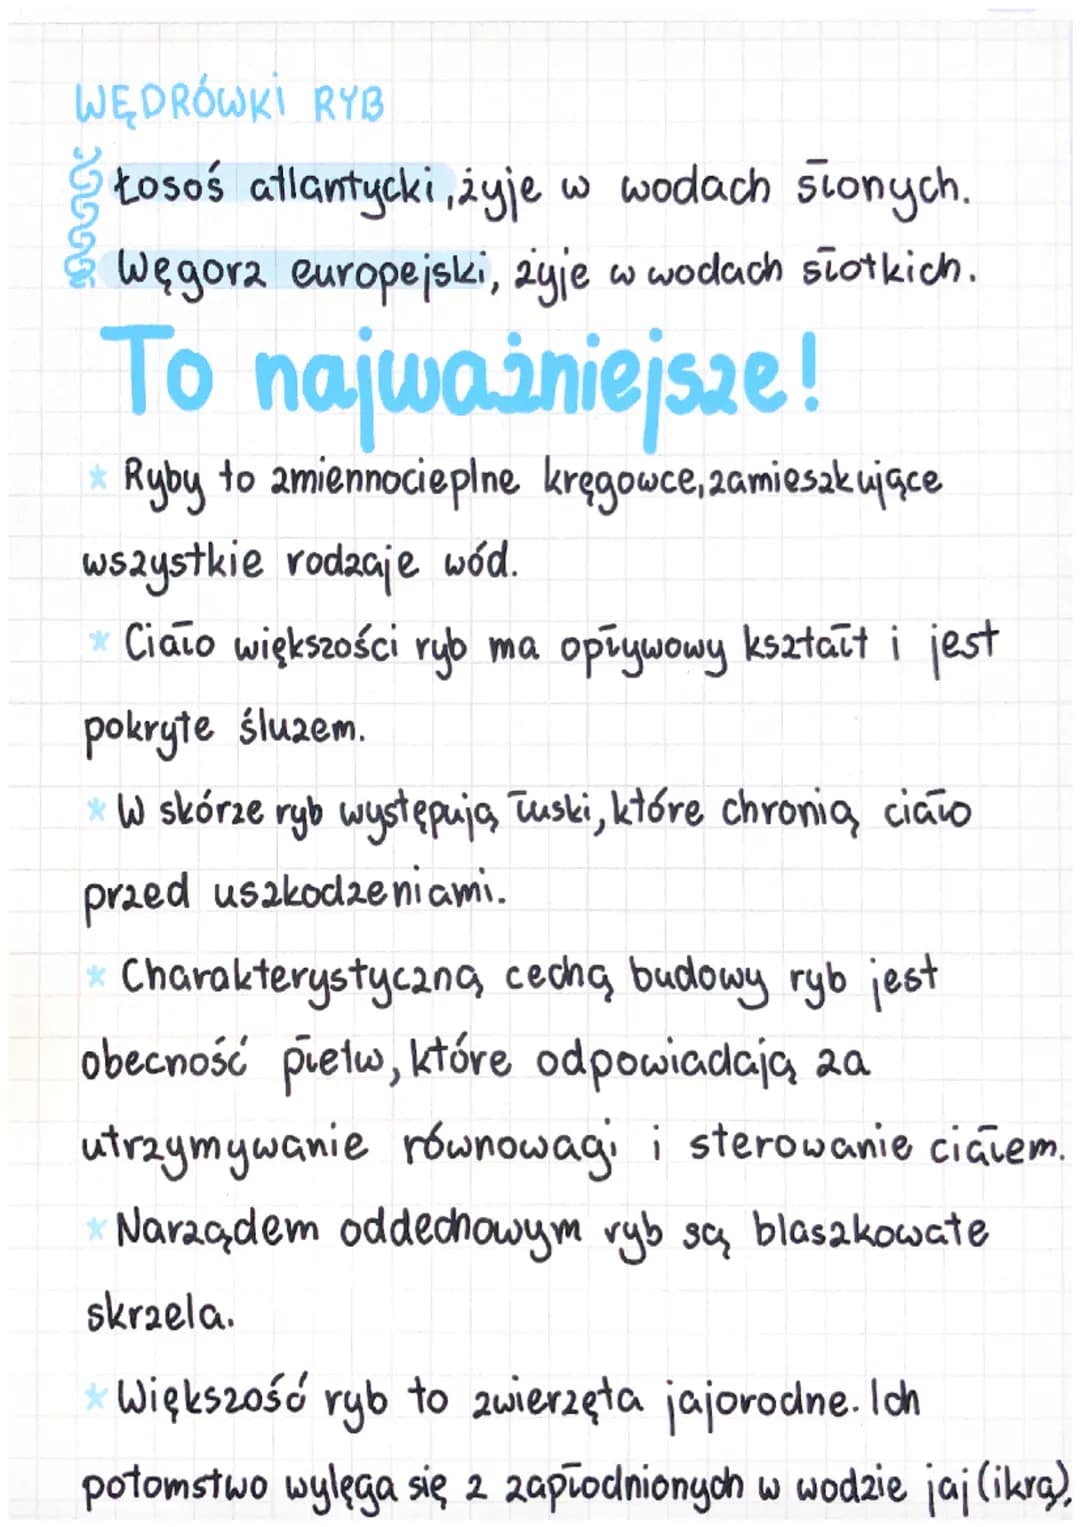 WĘDRÓWKI RYB
Łosoś atlantycki, żyje w wodach słonych.
Węgorz europejski, żyje w wodach słotkich.
To najważniejsze!
* Ryby to zmiennocieplne kręgowce, zamieszkujące
wszystkie rodzaje wód.
* Ciało większości ryb ma opływowy kształt i jest
pokryte śluzem.
* W skórze ryb występują łuski, które chronią ciało
przed uszkodzeniami.
* Charakterystyczną cechą budowy ryb jest
obecność płetw, które odpowiadają za
utrzymywanie równowagi i sterowanie ciałem.
* Narządem oddechowym ryb są blaszkowate
skrzela.
* Większość ryb to zwierzęta jajorodne. Ich
potomstwo wylęga się z zapłodnionych w wodzie jaj (ikra).